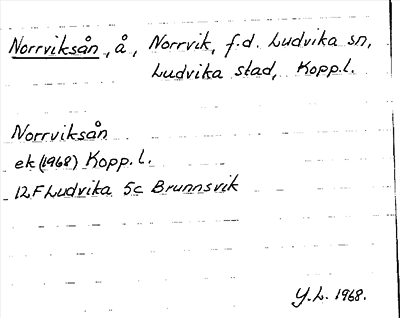 Norrviksån, å, Norrvik, f.d. Ludvika sn,
Ludvika stad, Kopp.l.
Norrviksån
ek (1968) Kopp.l.
12F Ludvika 5c Brunnsvik
Y.L. 1968.